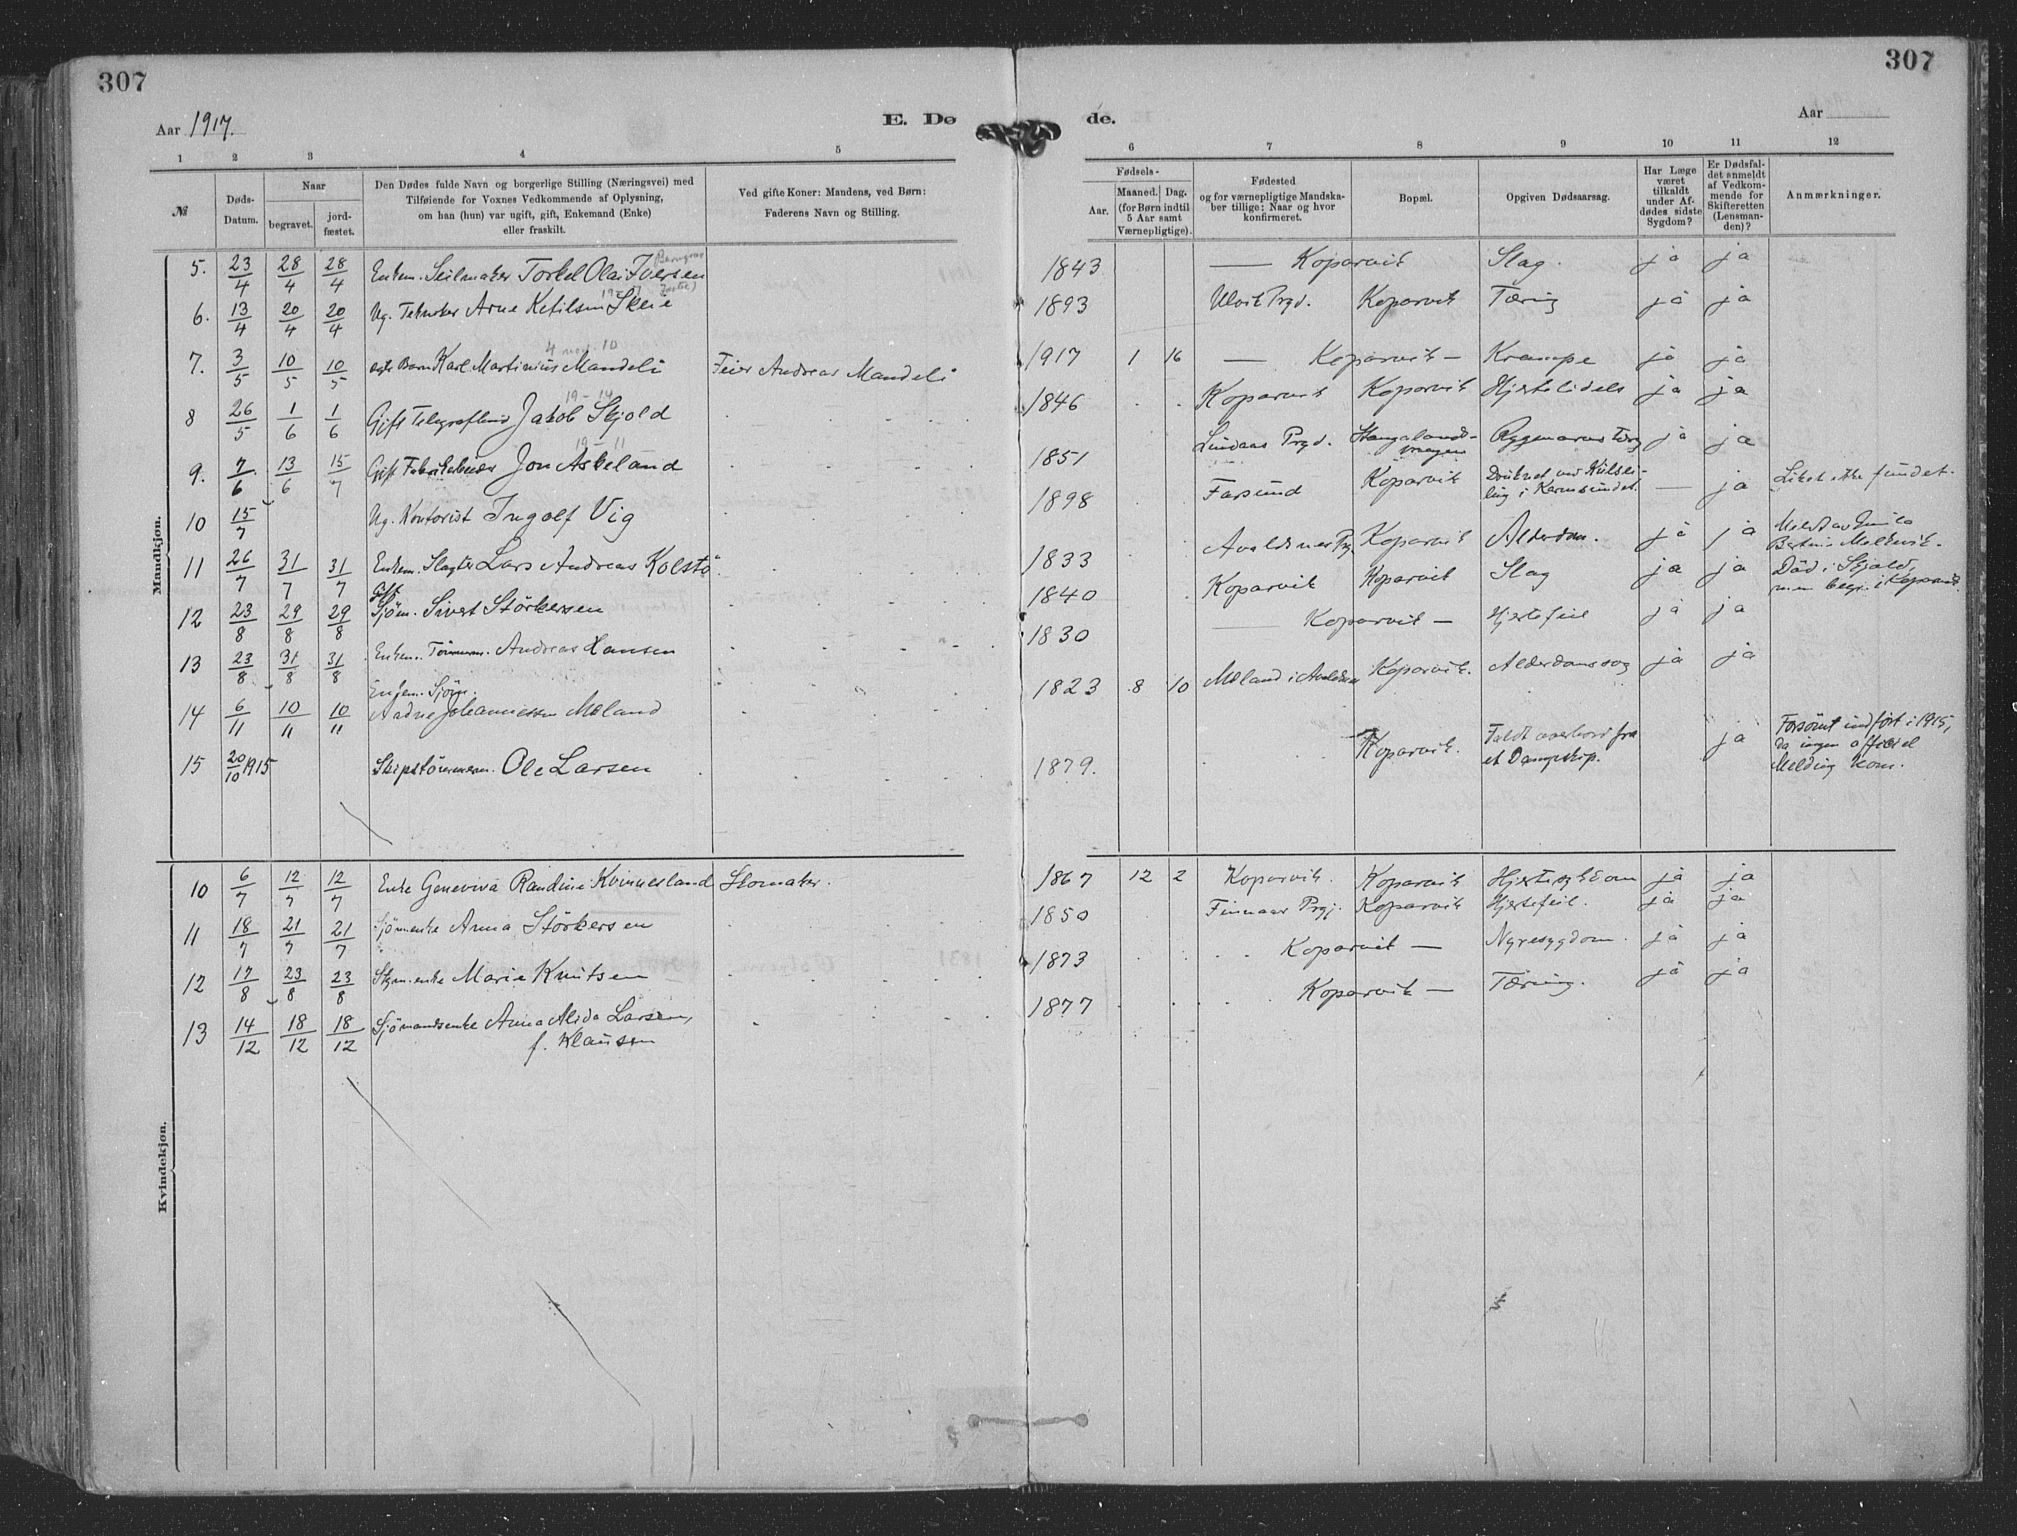 307
307
Aar 1917.
E. Dø
de.
Aar
1 2 3 4 5 6 7 8 9 10 11 12
№
Døds-Datum.
Naar
begravet.
jord-fæstet.
Den Dødes fulde Navn og borgerlige Stilling (Næringsvei) med
Tilføiende for Voxnes Vedkommende af Oplysning,
om han (hun) var ugift, gift, Enkemand (Enke)
eller fraskilt.
Ved gifte Koner: Mandens, ved Børn:
Faderens Navn og Stilling.
Fødsels-
Aar.
Maaned. Dag.
(for Børn indtil
5 Aar samt
Værnepligtige).
Fødested
og for værnepligtige Mandska-
ber tillige: Naar og hvor
konfirmeret.
Bopæl.
Opgiven Dødsaarsag.
Har Læge
været
tilkaldt
under Af-
dødes sidste
Sygdom?
Er Dødsfal-
det anmeldt
af Vedkom-
mende for
Skifteretten
(Lensman-
den)?
Anmærkninger.
Mandkjøn.
5. 23/4 28/4 28/4 Enkem. Seilmaker Torkel Olai Iversen 1843 — Koparvik Slag. ja ja
6. 13/4 20/4 20/4 Ug. Tekniker Arne Ketilsen Skeie 1893 Ulvik Prgd. Koparvik Tæring ja ja
4 nov. 10
7. 3/5 10/5 10/5 ægte Barn Karl Martinius Mandeli Feier Andreas Mandeli 1917 1 16 — Koparvik — Krampe ja ja
19-14
8 26/5 1/6 1/6 Gift Telegrafbud Jakob Skjold 1846 Koparvik Koparvik Hjertelidels ja ja
19-11
9. 7/6 13/6 15/7 Gift Fabrikarbeider Jon Askeland 1851 Lindaas Prgd. Stangelands-vaagen Rygmarvs Tæring ja ja
10 15/7 Ug. Kontorist Ingolf Vig 1898 Farsund Koparvik Druknet ved Kulsei-
ling i Karmsundet. — ja Liket ikke fundet.
11 26/7 31/7 31/7 Enkem. Slagter Lars Andreas Kolstø 1833 Avaldsnes Prg Koparvik Alderdom. ja ja Meldt av
12 23/8 29/8 29/8 Gift Sjøm. Sivert Störkersen 1840 Koparvik Koparvik Slag ja ja Död i Skjold,
men begr. i Koparvik.
13 23/8 31/8 31/8 Enkem. Tömmerm. Andreas Hansen 1830 — Koparvik — Hjertefeil ja ja
14 6/11 10/11 10/11 Enkem. Sjöm.
Aadne Johannessen Mæland 1823 8 10 Mæland i Avaldsnes Koparvik. Alderdomssvag ja ja
15 20/10 1915 Skipstömmerm. Ole Larsen 1879. Koparvik. Faldt overbord fra
et Dampskip. ja Forsömt indfört i 1915,
da ingen officiel
Melding kom.
Kvindekjøn.
10 6/7 12/7 12/7 Enke Geneviva Randine Kvinnesland Skomaker. 1867 12 2 Koparvik. Koparvik Hjertesykdom ja ja
11 18/7 21/7 21/7 Sjömenke Anna Störkersen 1850 Finnaas Prgj. Koparvik Hjertefeil. ja ja
12 17/8 23/8 23/8 Styrm.enke Marie Knutsen 1873 Koparvik — Nyresygdom. ja ja
13 14/12 18/12 18/12 Sjömandsenke Anna Alida Larsen,
f. Klausen 1877 Koparvik — Tæring. ja ja